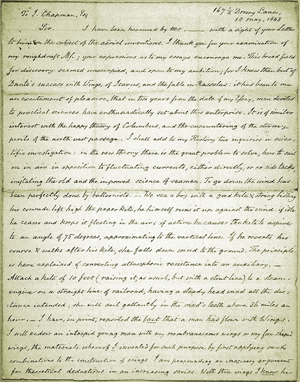 147 ½ Drury Lane,
10 May, 1843
To F. Chapman, Esq
Sir. I have been favoured by Mr —— with a sight of your Letter
to him on the subject of the aerial inventions. I thank you for your examination of
my rough draft MS; your expressions as to my essays encourage me. This broad field
for discovery seemed unoccupied, and open to my ambition; for I knew then but of
Dante's success with Wings, of Icarus, and the fable in Rasselas: it has been to me
an excitement of pleasure, that in ten years from the date of my Essay, men devoted
to practical sciences have enthusiastically set about this enterprise. It is of similar
interest with the happy theory of Columbus, and the circumnavigating of the stormy
parts of the north west passage. I shall add to my History two inquiries in scien-
tific investigation: in the one theory there is the great problem to solve, how to sail
on in air in opposition to fluctuating currents, either directly, or in side tacks
imitating the old and the improved science of seamen. To go down the wind has
been perfectly done by balloonists. We see a boy with a 2nd kite's string holding
his common kite high the proper kite, he himself runs it up against the wind; if idle
he ceases and keeps it floating in the air; if active he causes the kite to aspire
to an angle of 75 degrees, approximating to the vertical line. If he resorts his
course & walks after his kite, she falls down wind to the ground. The principle
I have explained of converting atmospheric resistance into an auxiliary.
Attach a kite of 10 feet (raising it, as usual, but with a stout line) to a steam
engine on a straight line of railroad, having a steady head wind all the dis-
tance intended, she will sail gallantly in the wind's teeth above 36 miles an
hour. — I have, in print, reported the fact that a man has flown with Wings:
I will endow an intrepid young man with my
wings, the materials whereof I invented for such purpose in first applying such
combinations to the construction of wings. I am propounding an
for theoretical deductions on an increasing series. With these wings I know he